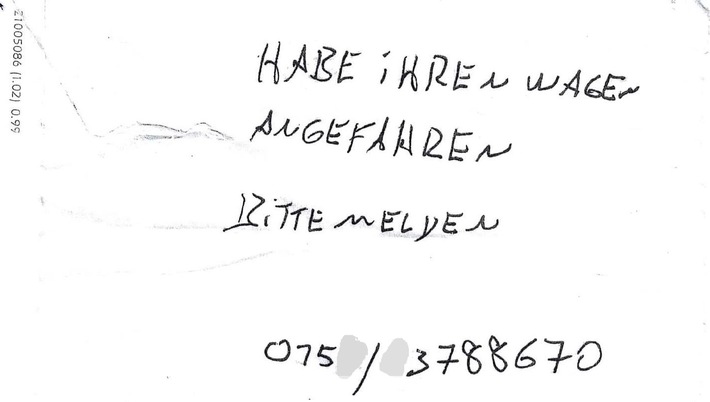 21005086 (1.02) 0.99
HABE iHREN WAGEN
ANGEFAHREN
BiTTE MELDEN
075 / 3788670